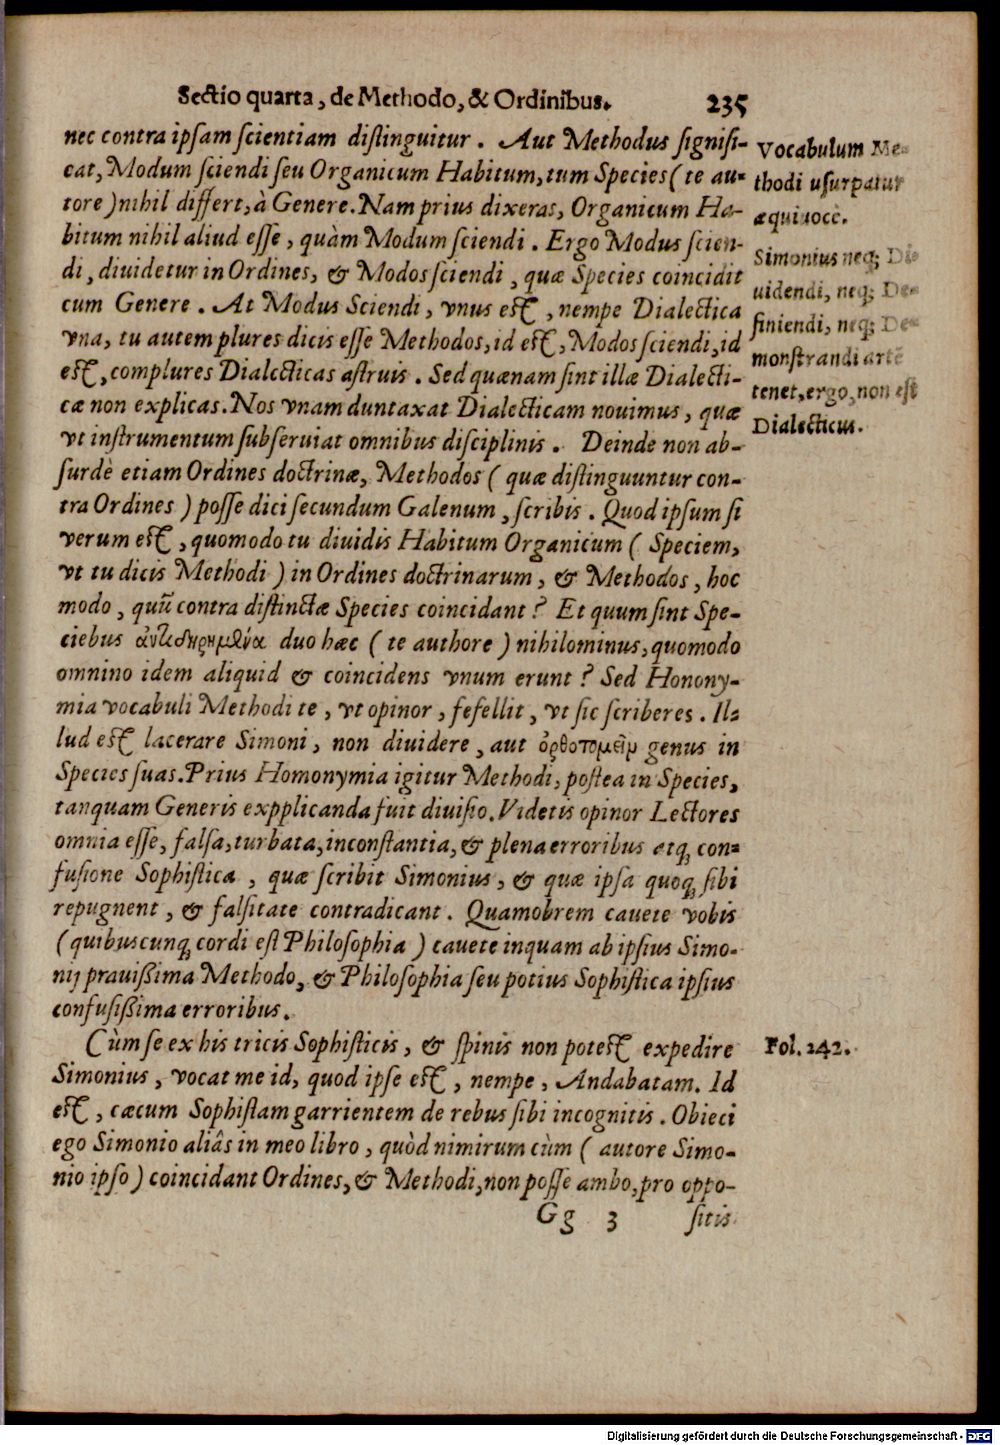 Sectio quarta, de Methodo, & Ordinibus. 235
nec contra ipsam scientiam distinguitur. Aut Methodus signifi-
cat, Modum sciendi seu Organicum Habitum, tum Species (te au-
tore) nihil differt, à Genere. Nam prius dixeras, Organicum Ha-
bitum nihil aliud esse, quàm Modum sciendi. Ergo Modus scien-
di, diuidetur in Ordines, & Modos sciendi, quæ Species coincidit
cum Genere. At Modus Sciendi, vnus est, nempe Dialectica
vna, tu autem plures dicis esse Methodos, id est, Modos sciendi, id
est, complures Dialecticas astruis. Sed quænam sint illæ Dialecti-
cæ non explicas. Nos vnam duntaxat Dialecticam nouimus, quæ
vt instrumentum subseruiat omnibus disciplinis. Deinde non ab-
surdè etiam Ordines doctrinæ, Methodos (quæ distinguuntur con-
tra Ordines) posse dici secundum Galenum, scribis. Quod ipsum si
verum est, quomodo tu diuidis Habitum Organicum (Speciem,
vt tu dicis Methodi) in Ordines doctrinarum, & Methodos, hoc
modo, quũ contra distinctæ Species coincidant? Et quum sint Spe-
ciebus ἀντιδιῃρημένα duo hæc (te authore) nihilominus, quomodo
omnino idem aliquid & coincidens vnum erunt? Sed Honony-
mia vocabuli Methodi te, vt opinor, fefellit, vt sic scriberes. Il-
lud est lacerare Simoni, non diuidere, aut ὀρθοτομεῖν genus in
Species suas. Prius Homonymia igitur Methodi, postea in Species,
tanquam Generis expplicanda fuit diuisio. Videtis opinor Lectores
omnia esse, falsa, turbata, inconstantia, & plena erroribus atq; con-
fusione Sophistica, quæ scribit Simonius, & quæ ipsa quoq; sibi
repugnent, & falsitate contradicant. Quamobrem cauete vobis
(quibuscunq; cordi est Philosophia) cauete inquam ab ipsius Simo-
nij prauißima Methodo, & Philosophia seu potius Sophistica ipsius
confusißima erroribus.
Cùm se ex his tricis Sophisticis, & spinis non potest expedire
Simonius, vocat me id, quod ipse est, nempe, Andabatam. Id
est, cæcum Sophistam garrientem de rebus sibi incognitis. Obieci
ego Simonio aliâs in meo libro, quòd nimirum cùm (autore Simo-
nio ipso) coincidant Ordines, & Methodi, non posse ambo, pro oppo-
Gg 3 sitis
Vocabulum Me-
thodi usurpatur
æquiuocè.
Simonius neq; Di-
uidendi, neq; De-
finiendi, neq; De-
monstrandi artē
tenet, ergo, non est
Dialecticus.
Fol. 242.
Digitalisierung gefördert durch die Deutsche Forschungsgemeinschaft - DFG